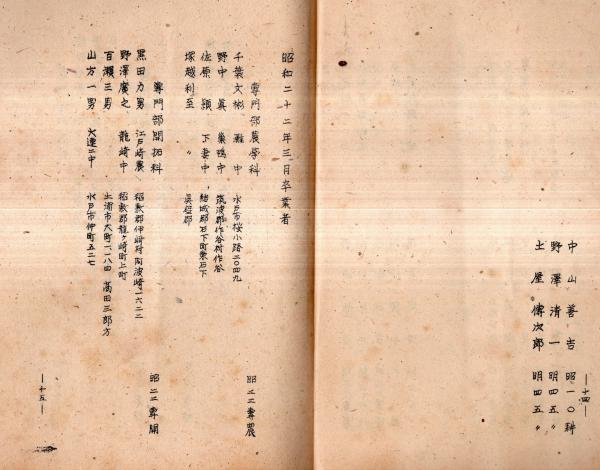 中山善吉 昭一〇耕
野澤清一 明四五〃
土屋傳次郎 明四五〃
―十四―
昭和二十二年三月卒業者
専門部農學科 昭二二専農
千葉文彬 灘中 水戸市桜小路二〇四九
野中眞 巣鴨中 筑波郡作谷村作谷
佐原穎 下妻中 結城郡石下町東石下
塚越利至 〃 眞壁郡
専門部開拓科 昭二二専開
黒田力男 江戸崎農 稲敷郡伊崎村阿波崎一六二二
野澤廣之 龍崎中 稲敷郡龍ヶ崎町上町
百瀬三男 土浦市大町一一八田 髙田三郎方
山方一男 大連二中 水戸市仲町五二七
―十五―